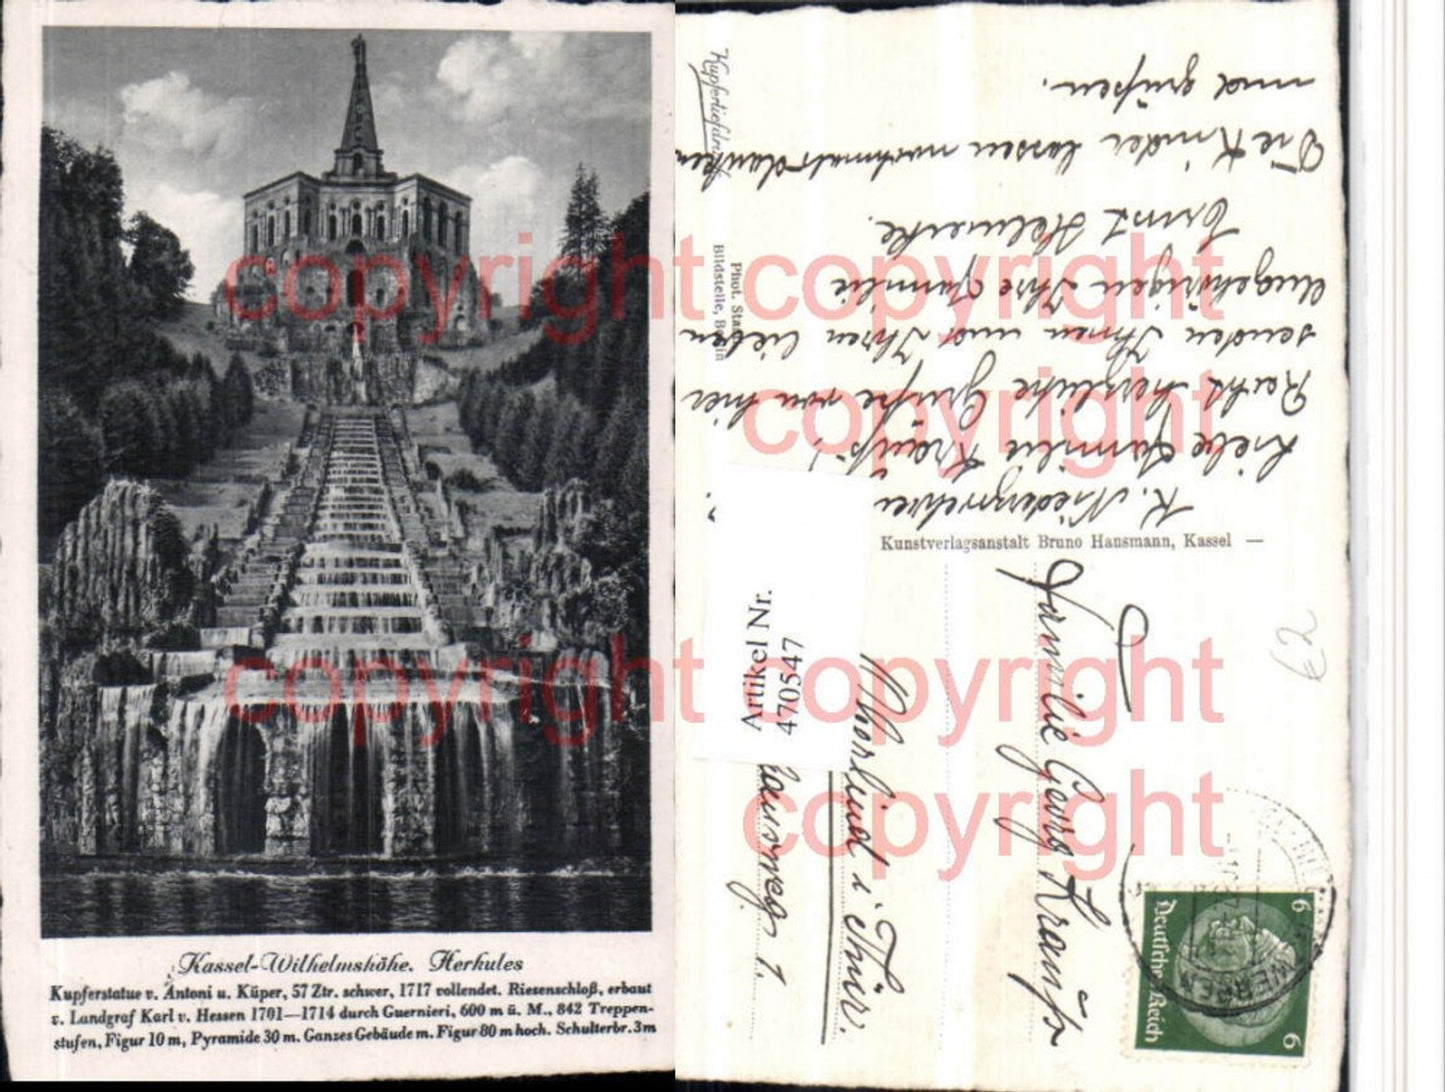 Kassel-Wilhelmshöhe. Herkules
Kupferstatue v. Antoni u. Küper, 57 Ztr. schwer, 1717 vollendet. Riesenschloß, erbaut
v. Landgraf Karl v. Hessen 1701—1714 durch Guernieri, 600 m ü. M., 842 Treppen-
stufen, Figur 10 m, Pyramide 30 m. Ganzes Gebäude m. Figur 80 m hoch. Schulterbr. 3m
Liebe Familie Krauß!
Recht herzliche Grüße von hier
senden Ihnen und Ihren lieben
Angehörigen Ihre Familie
Ernst
Die Kinder lassen nochmals danken
und grüßen.
Kupfertiefdruck
Phot. Staatl.
Bildstelle, Berlin
Kunstverlagsanstalt Bruno Hansmann, Kassel —
Familie Georg Krauß
i. Thür.
weg 1.
Artikel Nr.
470547
€2
6 Deutsches Reich 6
copyright copyright
copyright
copyright copyright
copyright